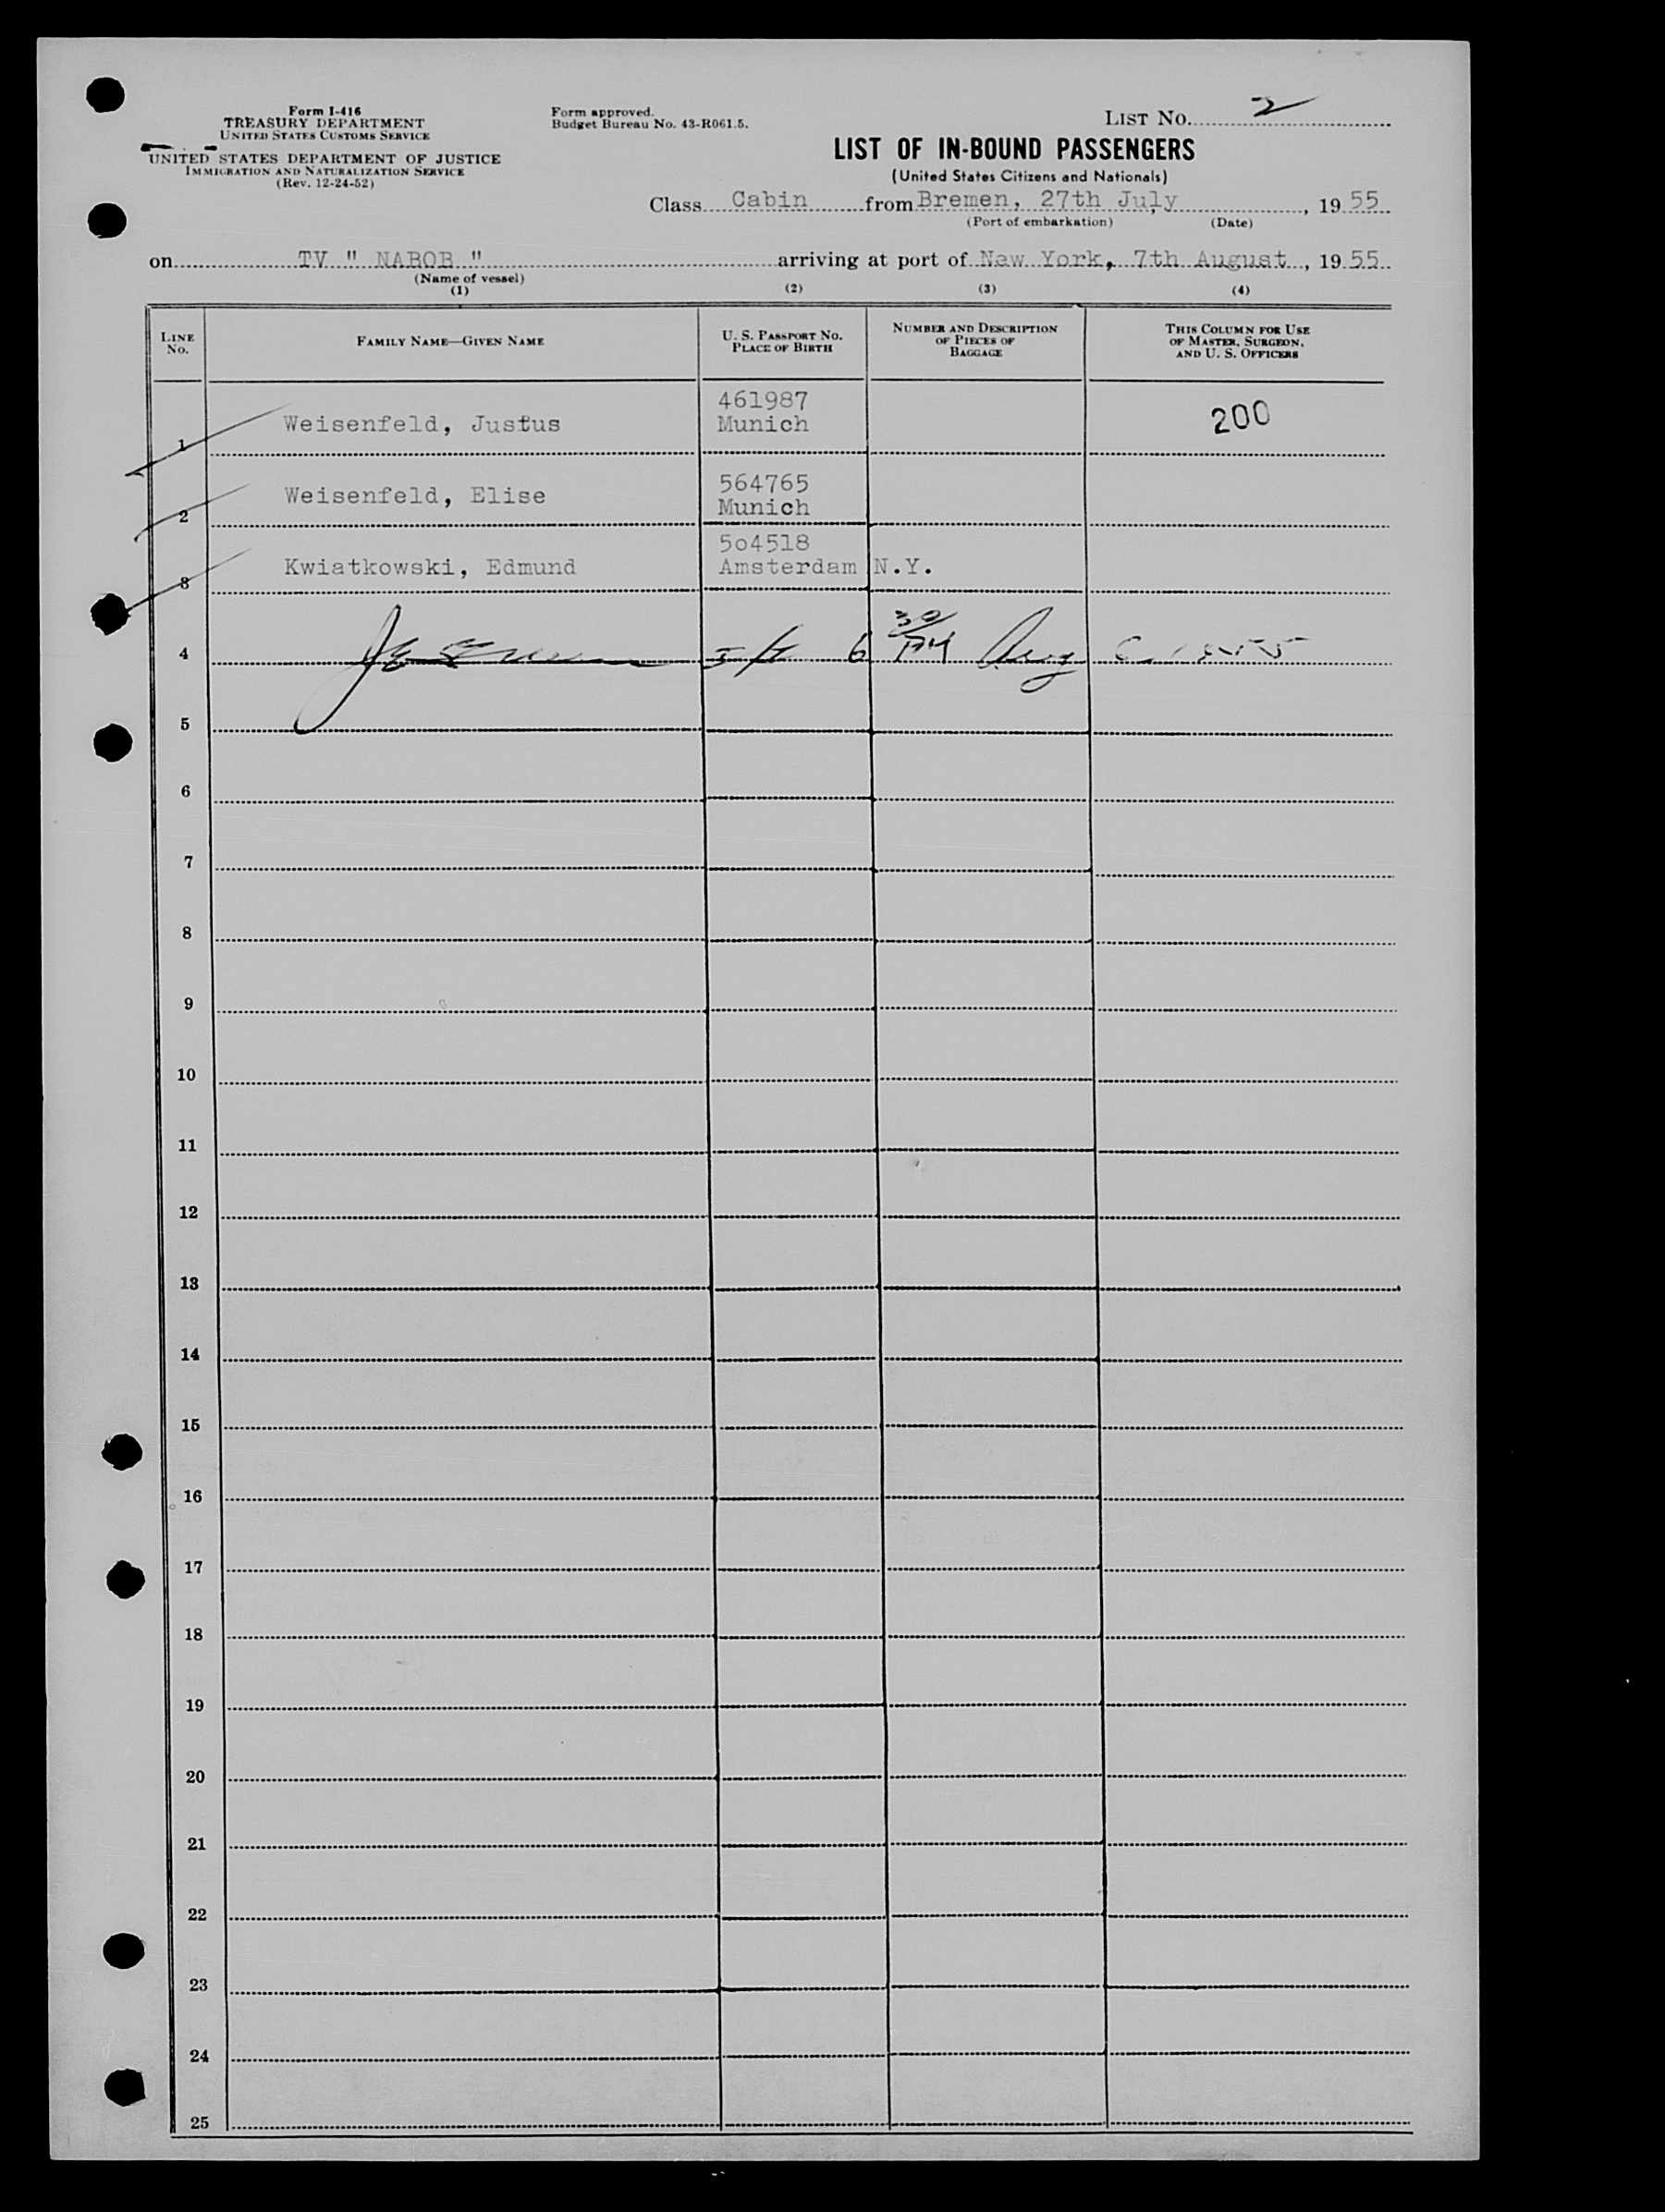 Form I-416
TREASURY DEPARTMENT
UNITED STATES CUSTOMS SERVICE
UNITED STATES DEPARTMENT OF JUSTICE
IMMIGRATION AND NATURALIZATION SERVICE
(Rev. 12-24-52)
Form approved.
Budget Bureau No. 43-R061.5.
LIST No. 2
LIST OF IN-BOUND PASSENGERS
(United States Citizens and Nationals)
Class Cabin from Bremen, 27th July, 1955
(Port of embarkation) (Date)
on TV " NABOB " arriving at port of New York, 7th August, 1955
(Name of vessel)
(1) (2) (3) (4)
LINE No. FAMILY NAME—GIVEN NAME U. S. PASSPORT No. PLACE OF BIRTH NUMBER AND DESCRIPTION OF PIECES OF BAGGAGE THIS COLUMN FOR USE OF MASTER, SURGEON, AND U. S. OFFICERS
461987
1 Weisenfeld, Justus Munich 200
564765
2 Weisenfeld, Elise Munich
5o4518
3 Kwiatkowski, Edmund Amsterdam N.Y.
4 6 Aug
5
6
7
8
9
10
11
12
13
14
15
16
17
18
19
20
21
22
23
24
25